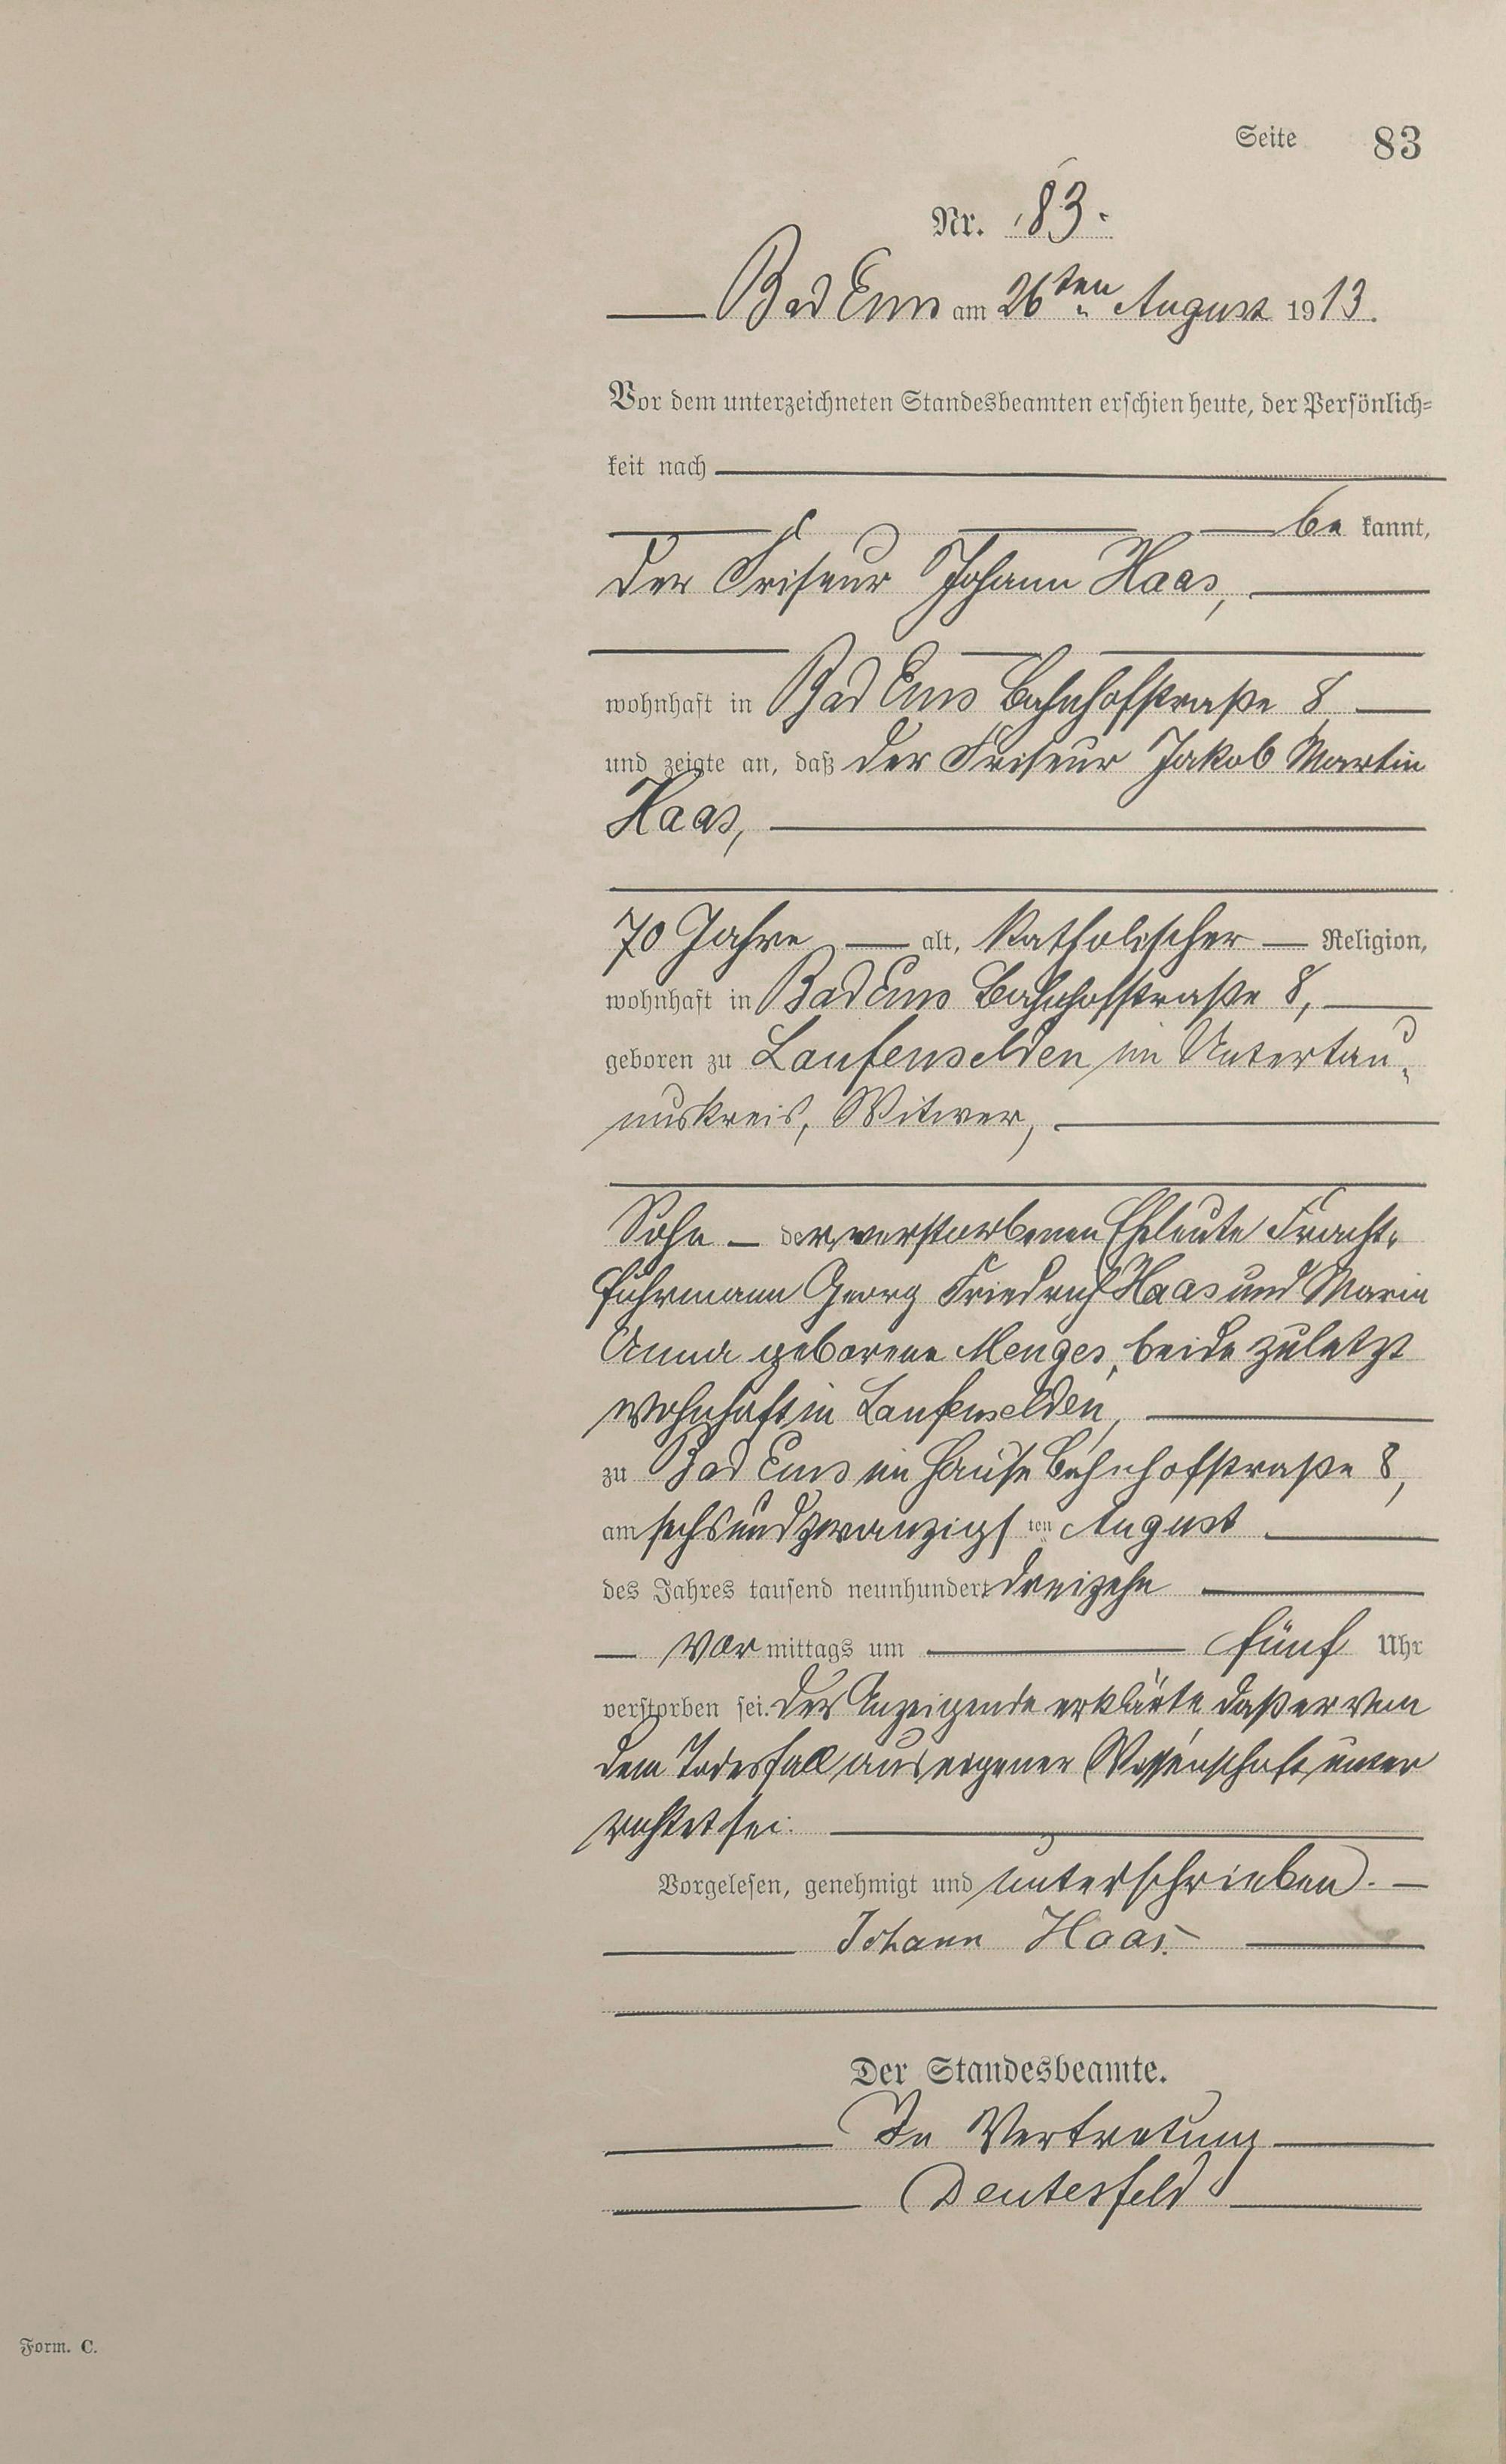 Seite 83
Nr. 83.
Bad Ems am 26ten August 1913.
Vor dem unterzeichneten Standesbeamten erschien heute, der Persönlich=
keit nach
be kannt,
der Friseur Johann Haas,
wohnhaft in Bad Ems Bahnhofstraße 8
und zeigte an, daß der Friseur Jakob Martin
Haas,
70 Jahre alt, katholischer Religion,
wohnhaft in Bad Ems Bahnhofstraße 8,
geboren zu Laufenselden im Untertau=
nuskreis, Witwer,
Sohn der verstorbenen Eheleute Fracht=
fuhrmann Georg Friedrich Haas und Maria
Anna geborene Menges, beide zuletzt
wohnhaft in Laufenselden,
zu Bad Ems im Hause Bahnhofstraße 8,
am sechsundzwanzigs ten August
des Jahres tausend neunhundert dreizehn
Vor mittags um fünf Uhr
verstorben sei. Der Anzeigende erklärte daß er von
dem Todesfall aus eigener Wissenschaft unter
richtet sei.
Vorgelesen, genehmigt und unterschrieben.
Johann Haas.
Der Standesbeamte.
In Vertretung
Deutesfeld
Form. C.